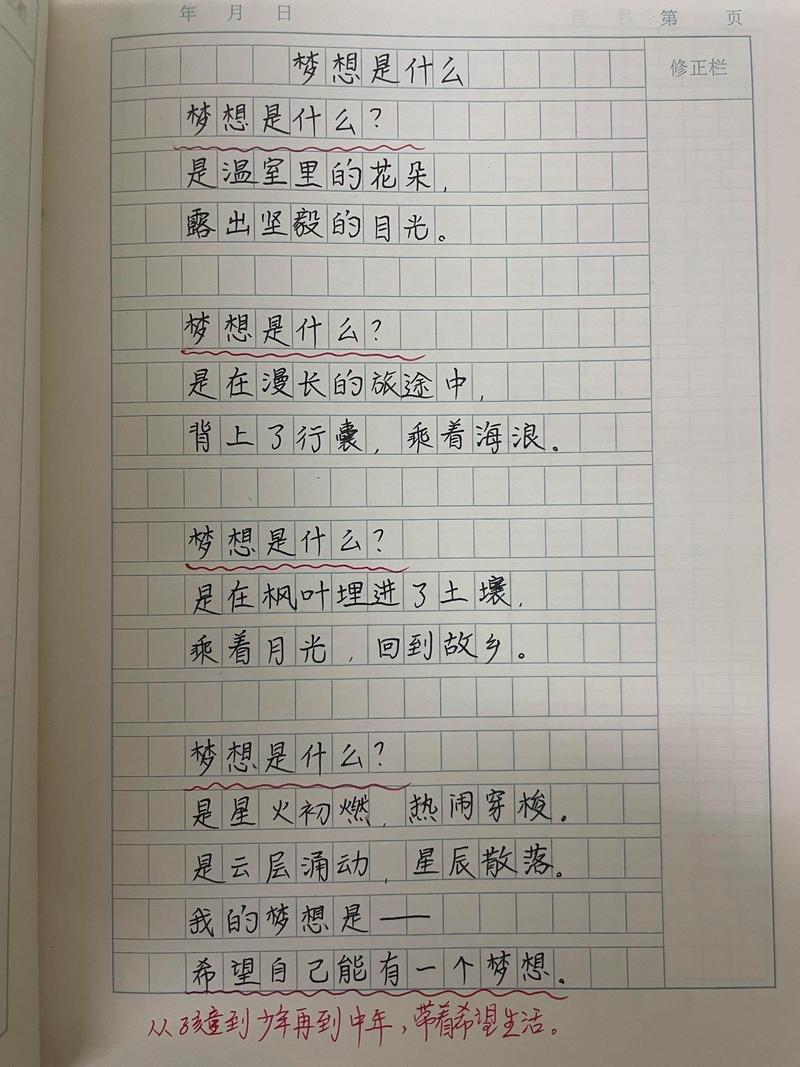 年 月 日
第 页
修正栏
梦想是什么
梦想是什么？
是温室里的花朵，
露出坚毅的目光。
梦想是什么？
是在漫长的旅途中，
背上了行囊，乘着海浪。
梦想是什么？
是在枫叶埋进了土壤，
乘着月光，回到故乡。
梦想是什么？
是星火初燃，热闹穿梭。
是云层涌动，星辰散落。
我的梦想是——
希望自己能有一个梦想。
从孩童到少年再到中年，带着希望生活。